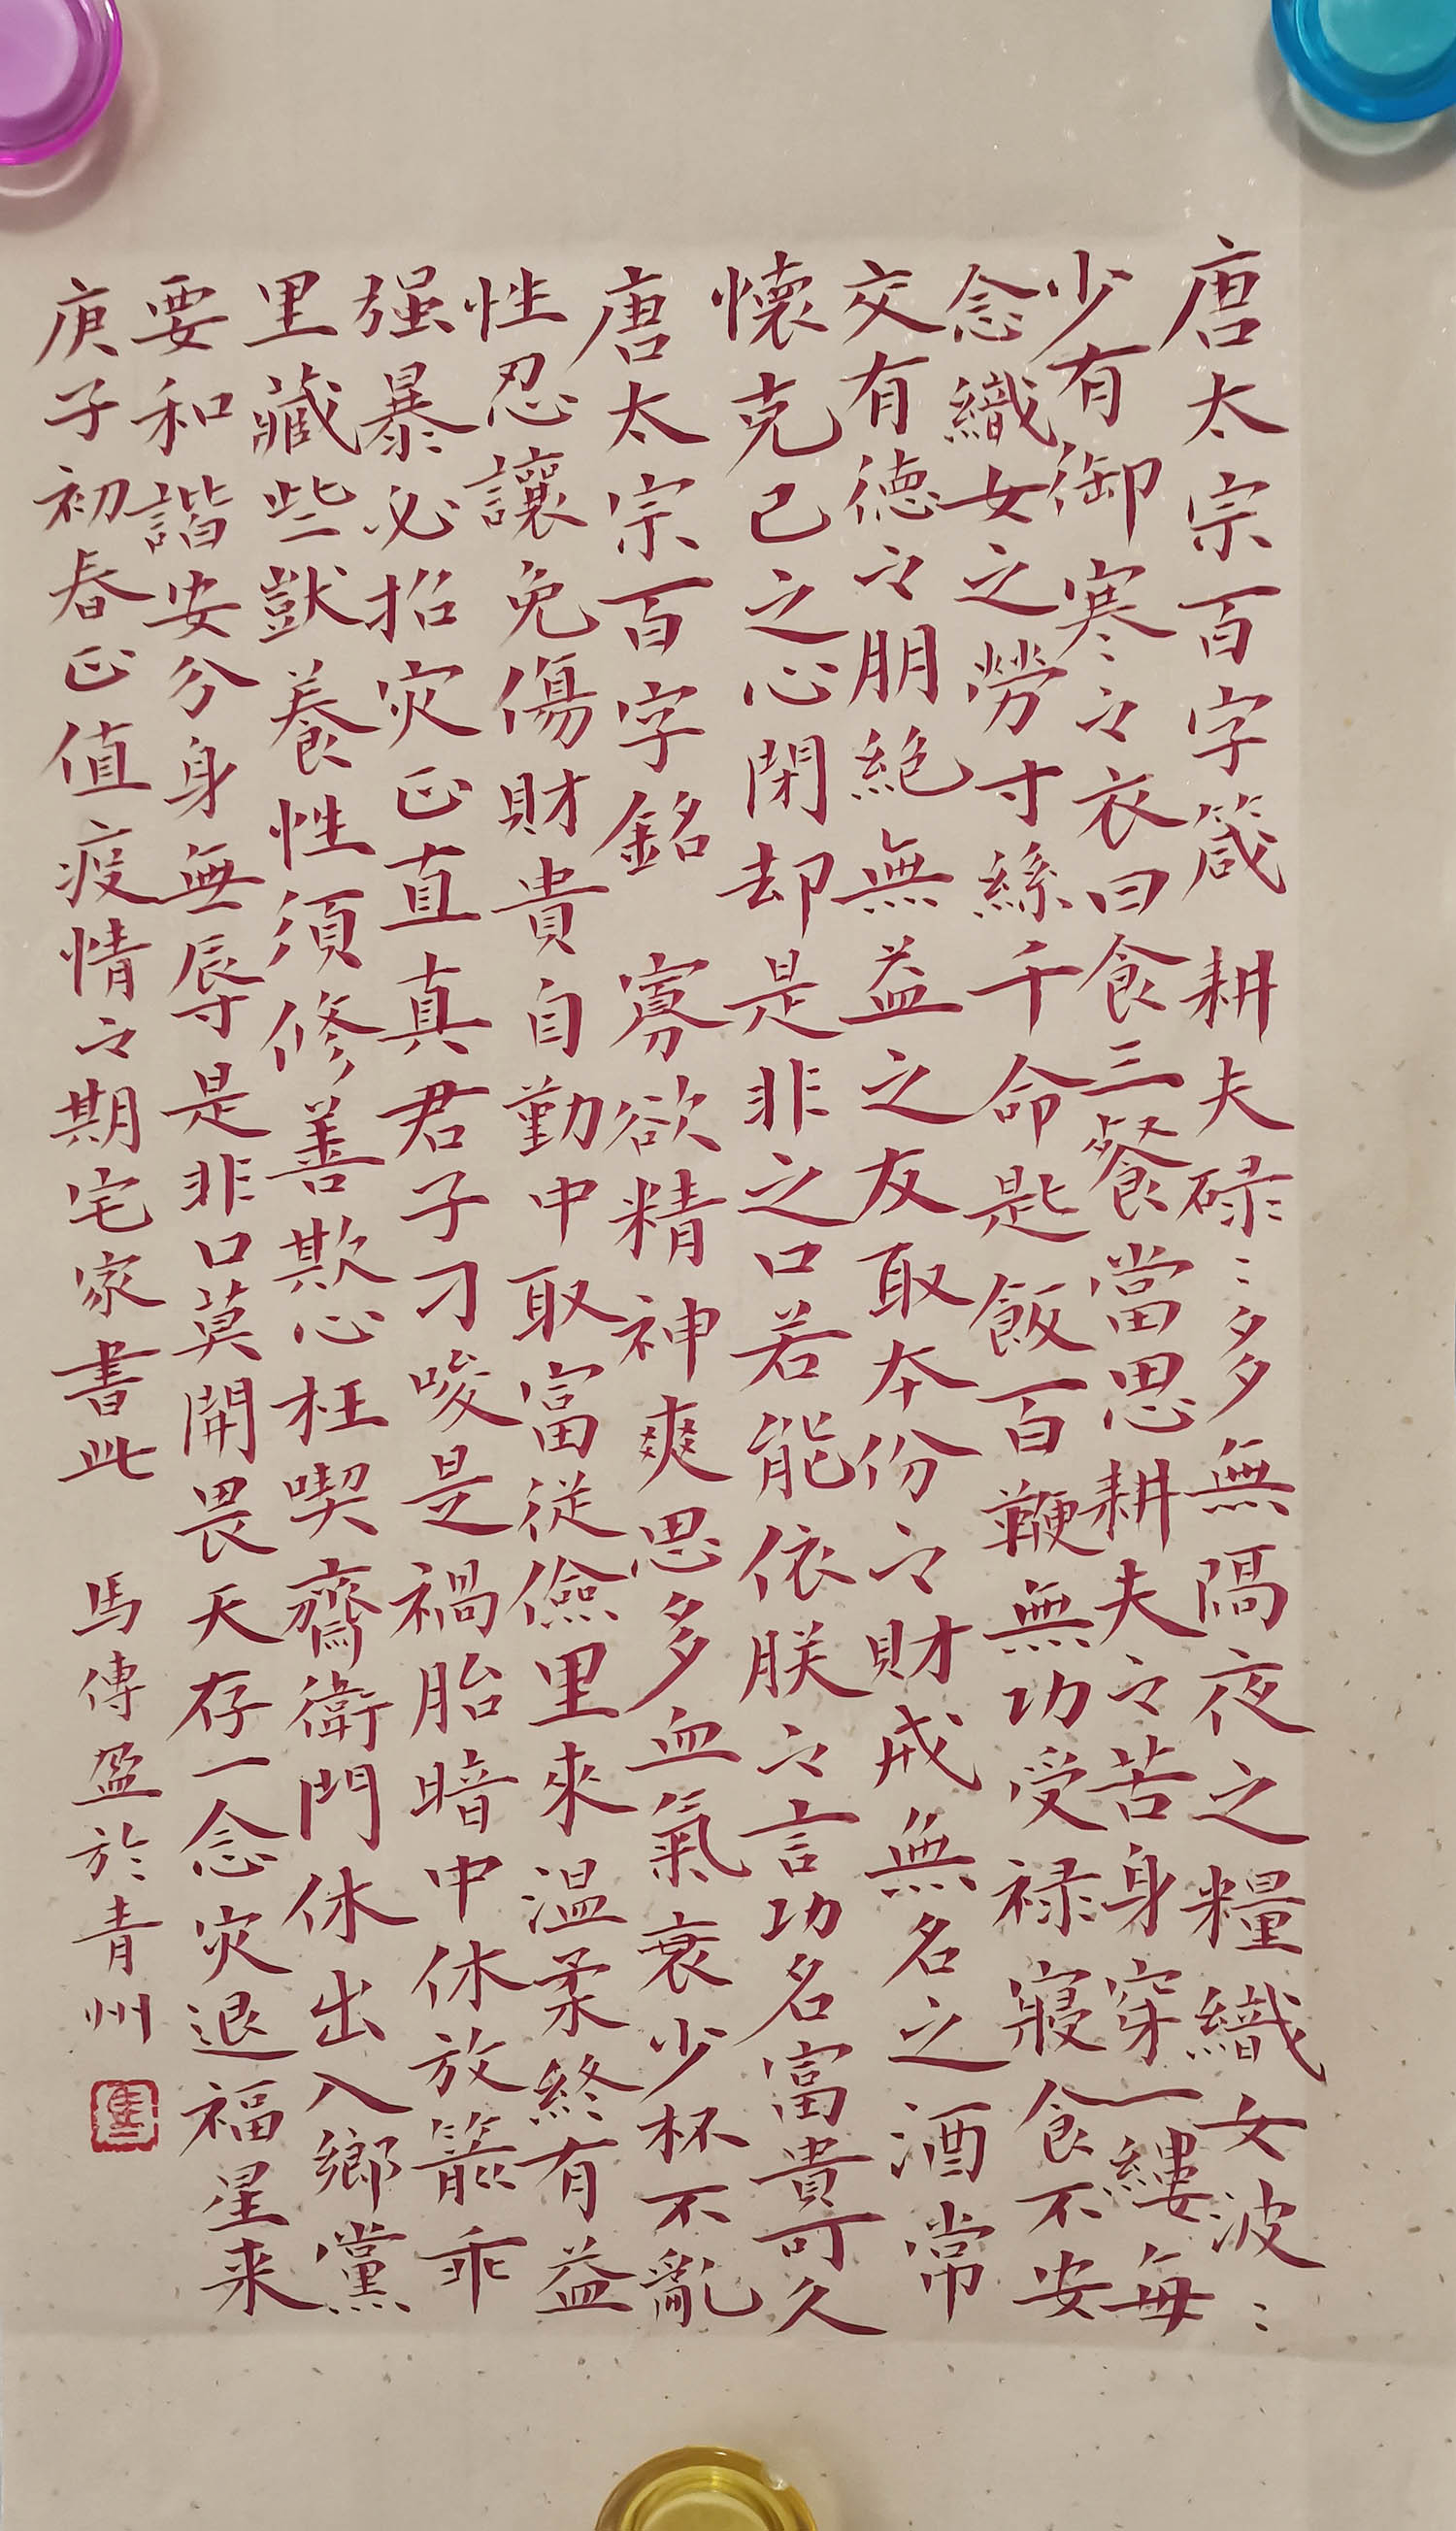 唐太宗百字箴 耕夫碌〻多無隔夜之糧織女波〻
少有御寒之衣日食三餐當思耕夫之苦身穿一縷每
念織女之勞寸絲千命匙飯百鞭無功受禄寢食不安
交有德之朋絕無益之友取本份之財戒無名之酒常
懷克己之心閉却是非之口若能依朕之言功名富貴可久
唐太宗百字銘 寡欲精神爽思多血氣衰少杯不亂
性忍讓免傷財貴自勤中取富從儉里來温柔終有益
强暴必招灾正直真君子刁唆是禍胎暗中休放箭乖
里藏些獃養性須修善欺心枉喫齋衛門休出入鄉黨
要和諧安分身無辱是非口莫開畏天存一念灾退福星来
庚子初春正值疫情之期宅家書此 馬傳盈於青州